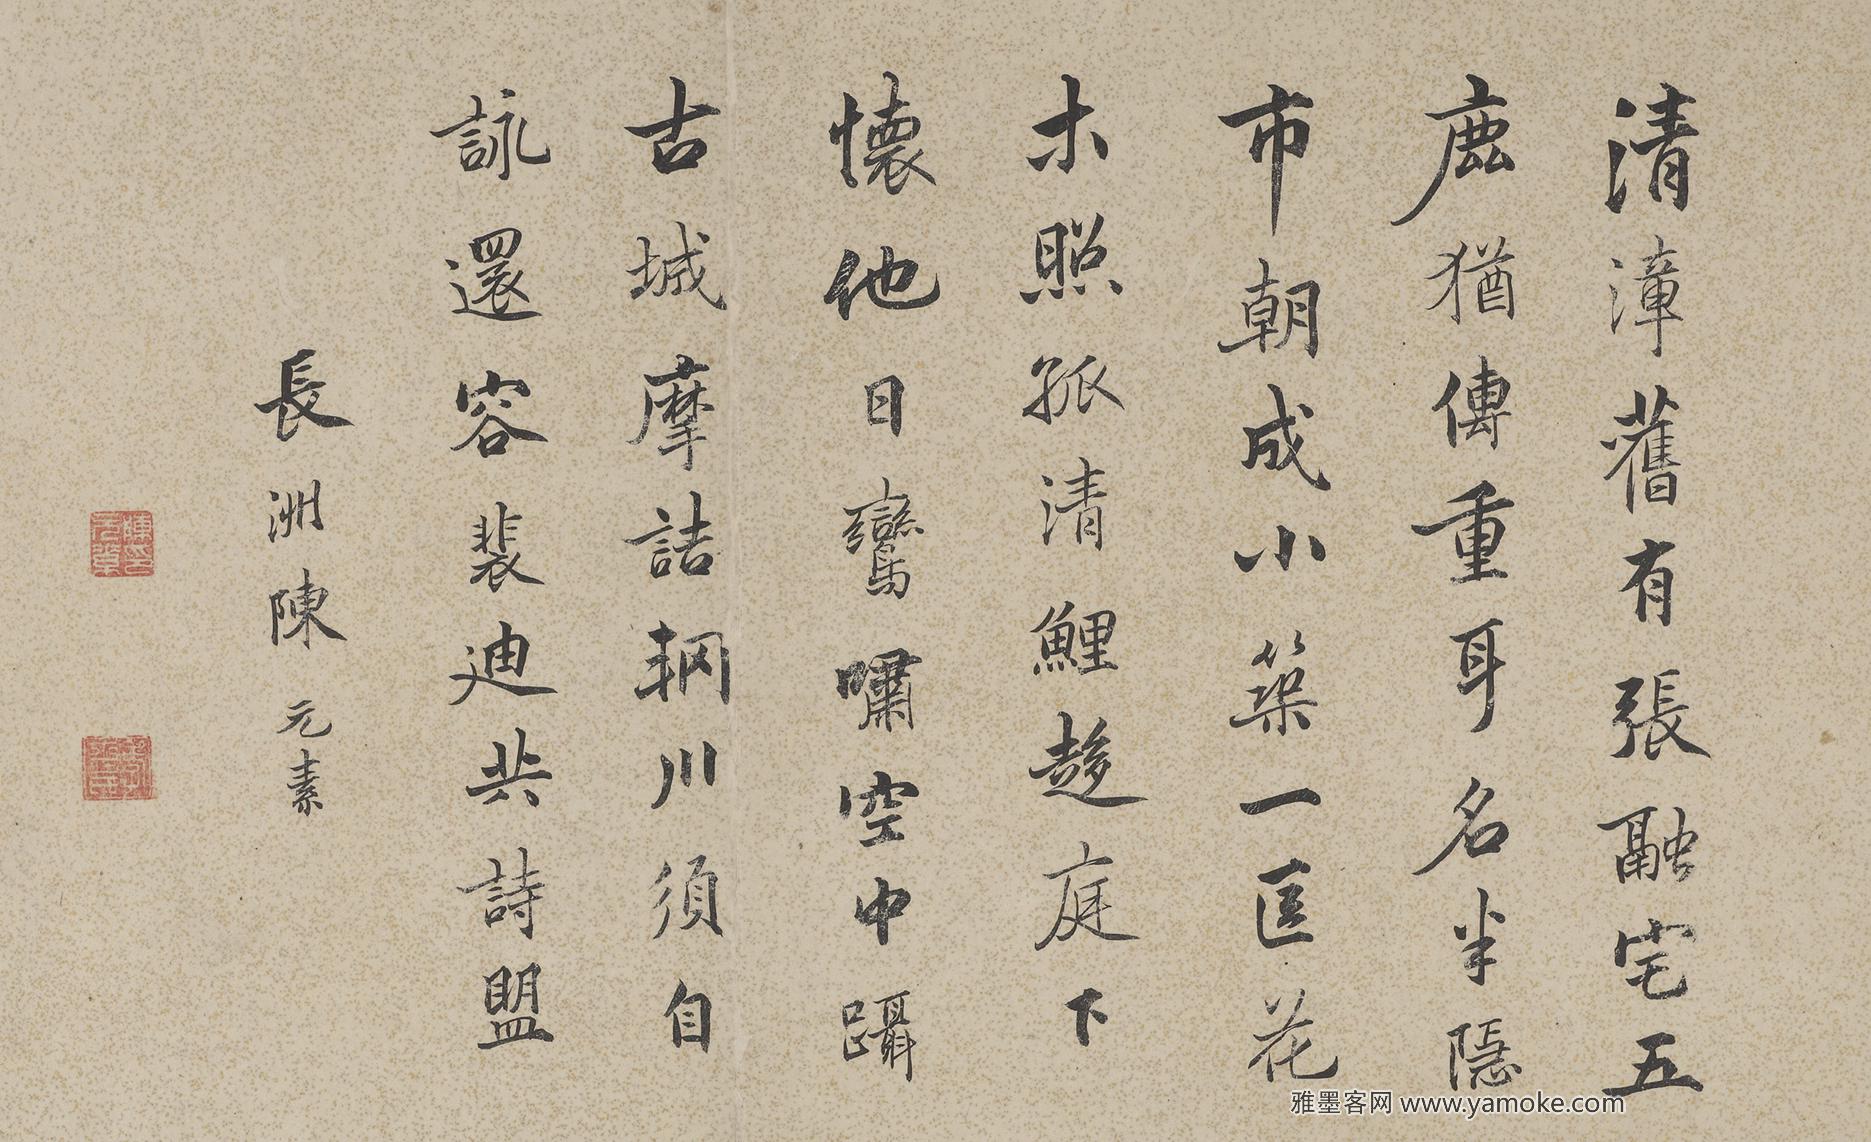 清漳舊有張融宅五
鹿猶傳重耳名半隱
市朝成小築一區花
木照孤清鯉趍庭下
懷他日鸞嘯空中躡
古城摩詰輞川須自
詠還容裴迪共詩盟
長洲陳元素
雅墨客网 www.yamoke.com